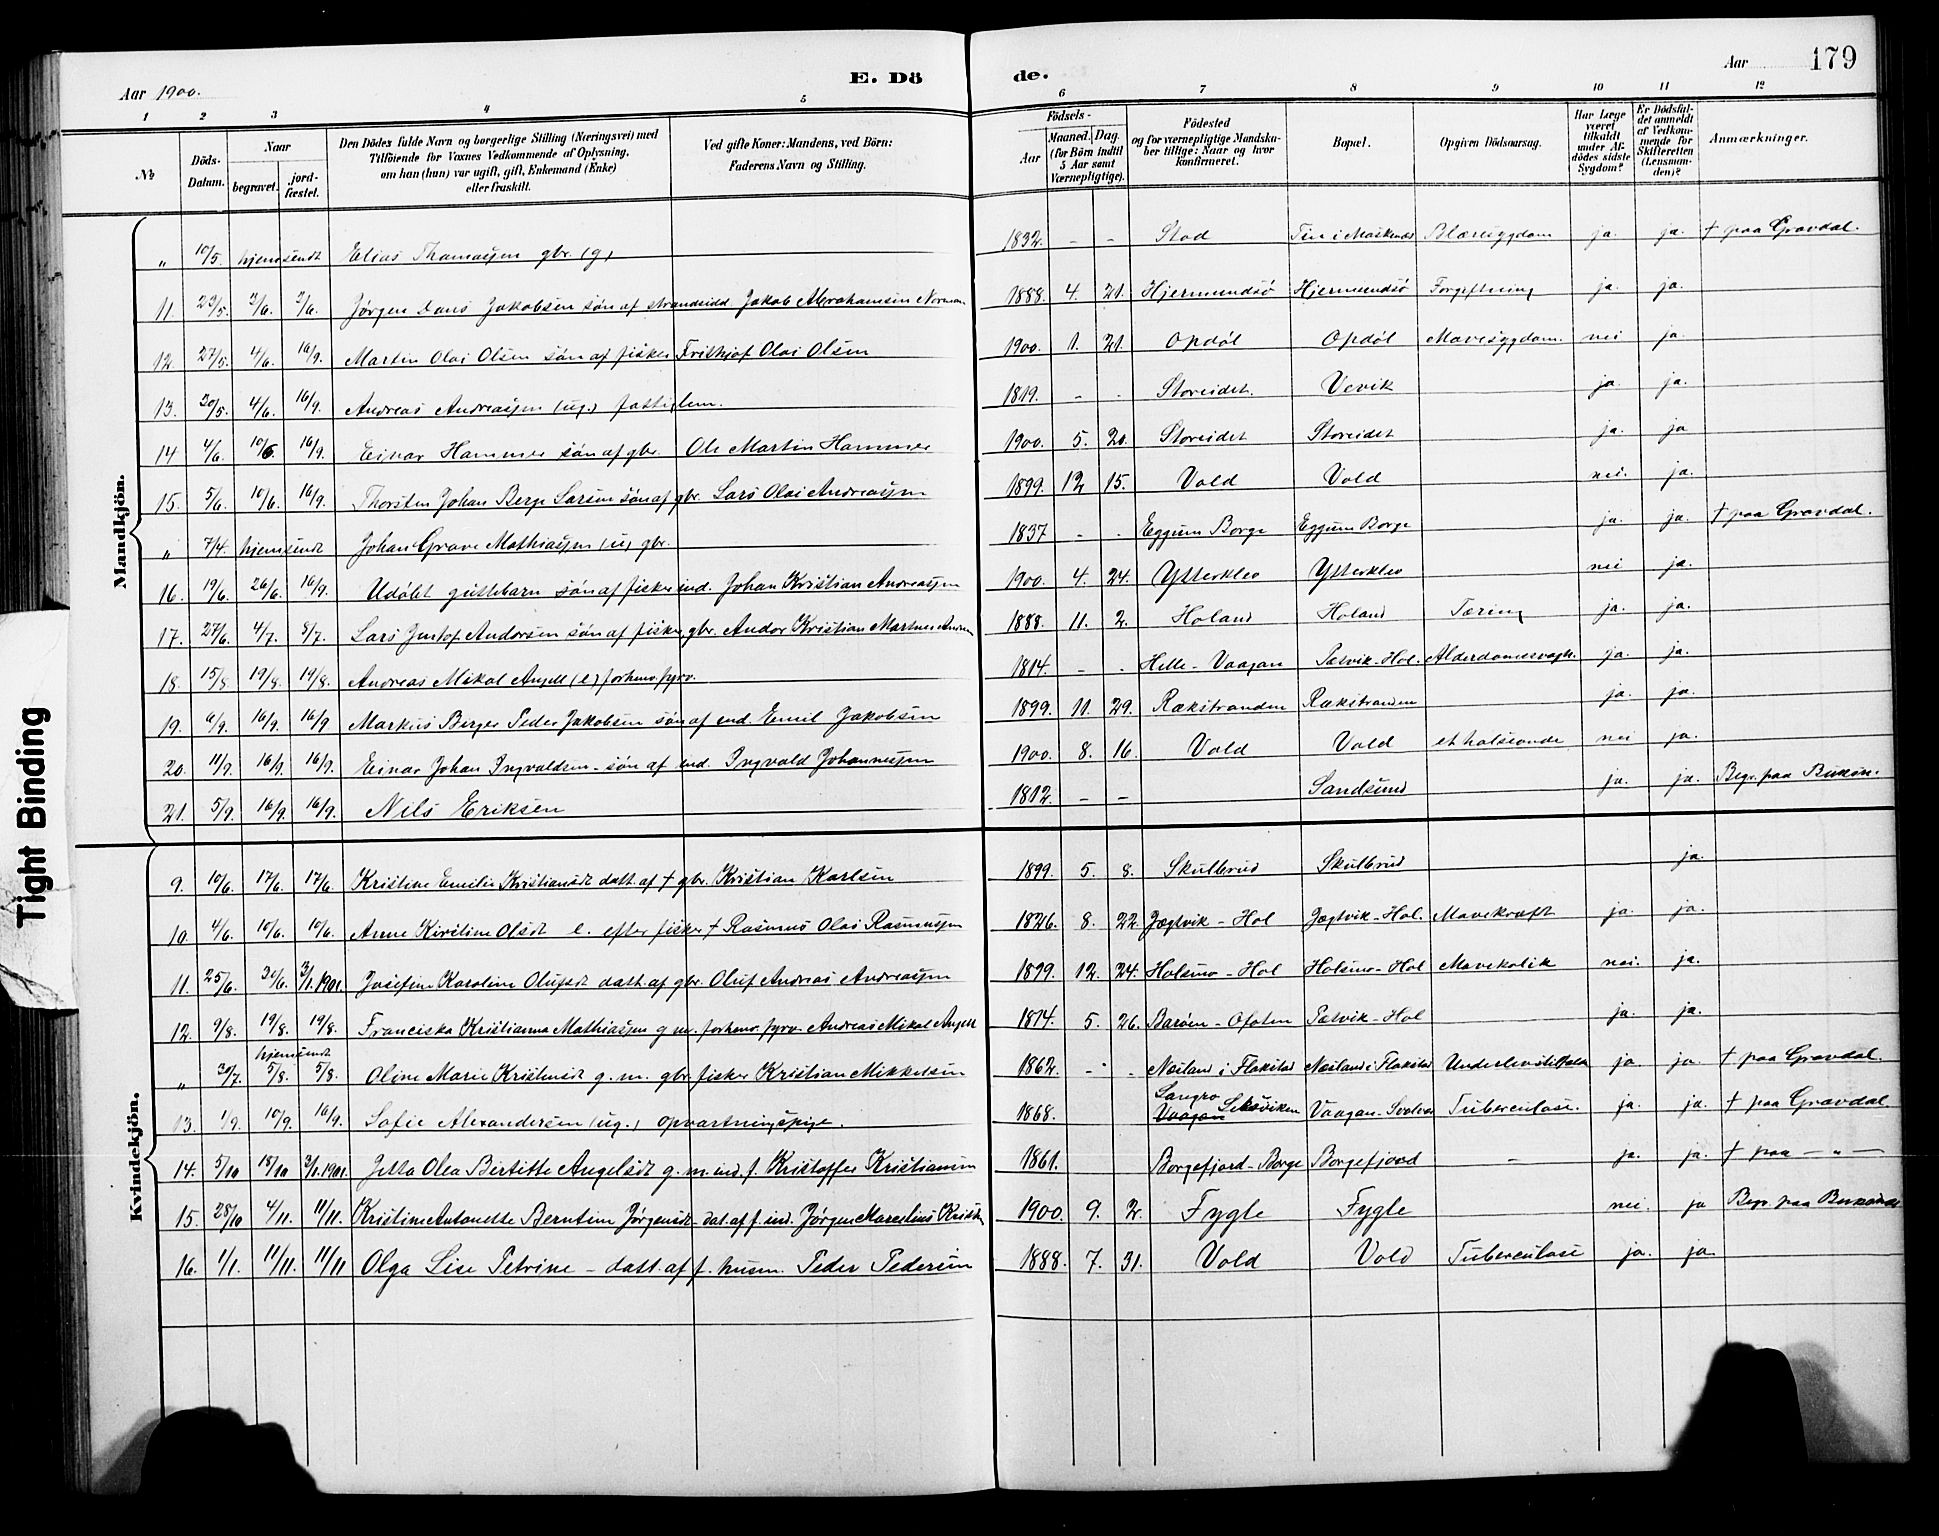 Tight Binding
Aar 1900.
E. Dö
de.
Aar
179
1 2 3 4 5 6 7 8 9 10 11 12
№
Döds-Datum.
Naar
begravet.
jord-fæstet.
Den Dödes fulde Navn og borgerlige Stilling (Næringsvei) med
Tilföiende for Voxnes Vedkommende af Oplysning,
om han (hun) var ugift, gift, Enkemand (Enke)
eller fraskilt.
Ved gifte Koner: Mandens, ved Börn:
Faderens Navn og Stilling.
Födsels-
Aar
Maaned. Dag.
(for Börn indtil
5 Aar samt
Værnepligtige).
Födested
og for værnepligtige Mandska-
ber tillige: Naar og hvor
konfirmeret.
Bopæl.
Opgiven Dödsaarsag.
Har Læge
været
tilkaldt
under Af-
dödes sidste
Sygdom?
Er Dödsfal-
det anmeldt
af Vedkom-
mende for
Skifteretten
(Lensman-
den)?
Anmærkninger.
Mandkjön.
" 10/5. hjemsendt Elias Thomassen gbr. (g) 1832. - - Stad Tin i Moskenæs Blæresygdom ja. ja. † paa Gravdal.
11. 23/5. 3/6. 3/6. Jørgen Dans Jakobsen søn af strandsidd. Jakob Abrahamsen Norman 1888. 4. 21. Hjermundsø Hjermundsø Forgiftning ja. ja.
12. 27/5. 4/6. 16/9. Martin Olai Olsen søn af fisker Frithjof Olai Olsen 1900. 1. 21. Opdøl Opdøl Mavesygdom. nei ja.
13. 30/5. 4/6. 16/9. Andreas Andreassen (ug.) fattiglem. 1819. - - Storeidet. Vevik ja. ja.
14 4/6. 10/6 16/9. Einar Hammer søn af gbr. Ole Martin Hammer 1900. 5. 20. Storeidet Storeidet ja. ja
15. 5/6. 10/6. 16/9. Thorsten Johan Berge Larsen søn af gbr. Lars Olai Andreassen 1899. 12 15. Vold Vold nei. ja.
" 7/4. hjemsendt Johan Grave Mathiassen (u) gbr. 1837 - - Eggum Borge Eggum Borge ja. ja. † paa Gravdal.
16. 19/6. 26/6. 16/9. Udøbt guttebarn søn af fisker ind. Johan Kristian Andreassen 1900. 4. 24. Ytterklev Ytterklev nei ja.
17. 27/6. 4/7. 8/7. Lars Justof Andorsen søn af fisker, gbr. Andor Kristian Martner 1888. 11. 2. Holand Holand Tæring ja. ja.
18. 15/8. 19/8. 19/8. Andreas Mikal Angell (e) forhenv. fyrv. 1814. - - Helle-Vaagan Petvik-Hol. Alderdomssvagh. ja. ja.
19. 6/9. 16/9. 16/9 Markus Berger Peder Jakobsen søn af ind. Emil Jakobsen 1899. 11. 29. Rækstranden Rækstranden ja. ja.
20. 11/9. 16/9. 16/9. Einar Johan Ingvaldsen - søn af ind. Ingvald Johannessen 1900. 8. 16. Vold Vold et halsonde nei ja.
21. 5/9. 16/9. 16/9. Nils Eriksen 1812. - - Sandsund ja. ja. Begr. paa Buksn.
Kvindekjön.
9. 10/6. 17/6. 17/6. Kristine Emilie Kristiansdt datt. af † gbr. Kristian Karlsen 1899. 5. 8. Skulbrud Skulbrud ja.
10. 4/6. 10/6. 10/6. Anne Kirstine Olsdt e. efter fisker † Rasmus Olai Rasmussen 1826. 8. 22. Jægtvik - Hol Jægtvik - Hol. Mavekræft ja. ja.
11. 25/6. 30/6. 3/1.1901. Josefine Karoline Olufsdt datt. af gbr. Oluf Andreas Andreassen 1899. 12. 24. Holsmo-Hol Holsmo-Hol Mavekolik nei. ja.
12. 9/8. 19/8. 19/8. Franciska Kristianna Mathiassen g. m. forhenv. fyrv. Andreas Mikal Angell 1814. 5. 26. Barøen-Ofoten Petvik-Hol ja. ja.
" 30/7. hjemsendt 5/8. 5/8. Oline Marie Kristensdt g. m. gbr. fisker Kristian Mikkelsen 1862. - - Næsland i Flakstad Næsland i Flakstad ja ja. † paa Gravdal.
13. 1/9. 10/9. 16/9. Sofie Alexandersen (ug.) opvartningspige. 1868. Vaagan Seksviken Vaagan-Svolvær Tuberculose. ja. ja. † paa Gravdal
14. 5/10 18/10 3/1.1901. Jetta Olea Bertitte Angelsdt g. m. ind. f. Kristoffer Kristiansen 1861. Borgefjord-Borge Borgefjord - ja. ja. † paa - " -
15. 28/10 4/11. 11/11. Kristine Antonette Berntine Jørgensdt dat. af f. ind. Jørgen Marcelius 1900. 9. 2. Fygle Fygle nei. ja Begr. paa Buksnæs
16. 1/1. 11/11. 11/11 Olga Lise Petrine - datt. af f. husm. Peder Pedersen 1888. 7. 31. Vold Vold Tuberculose ja. ja.